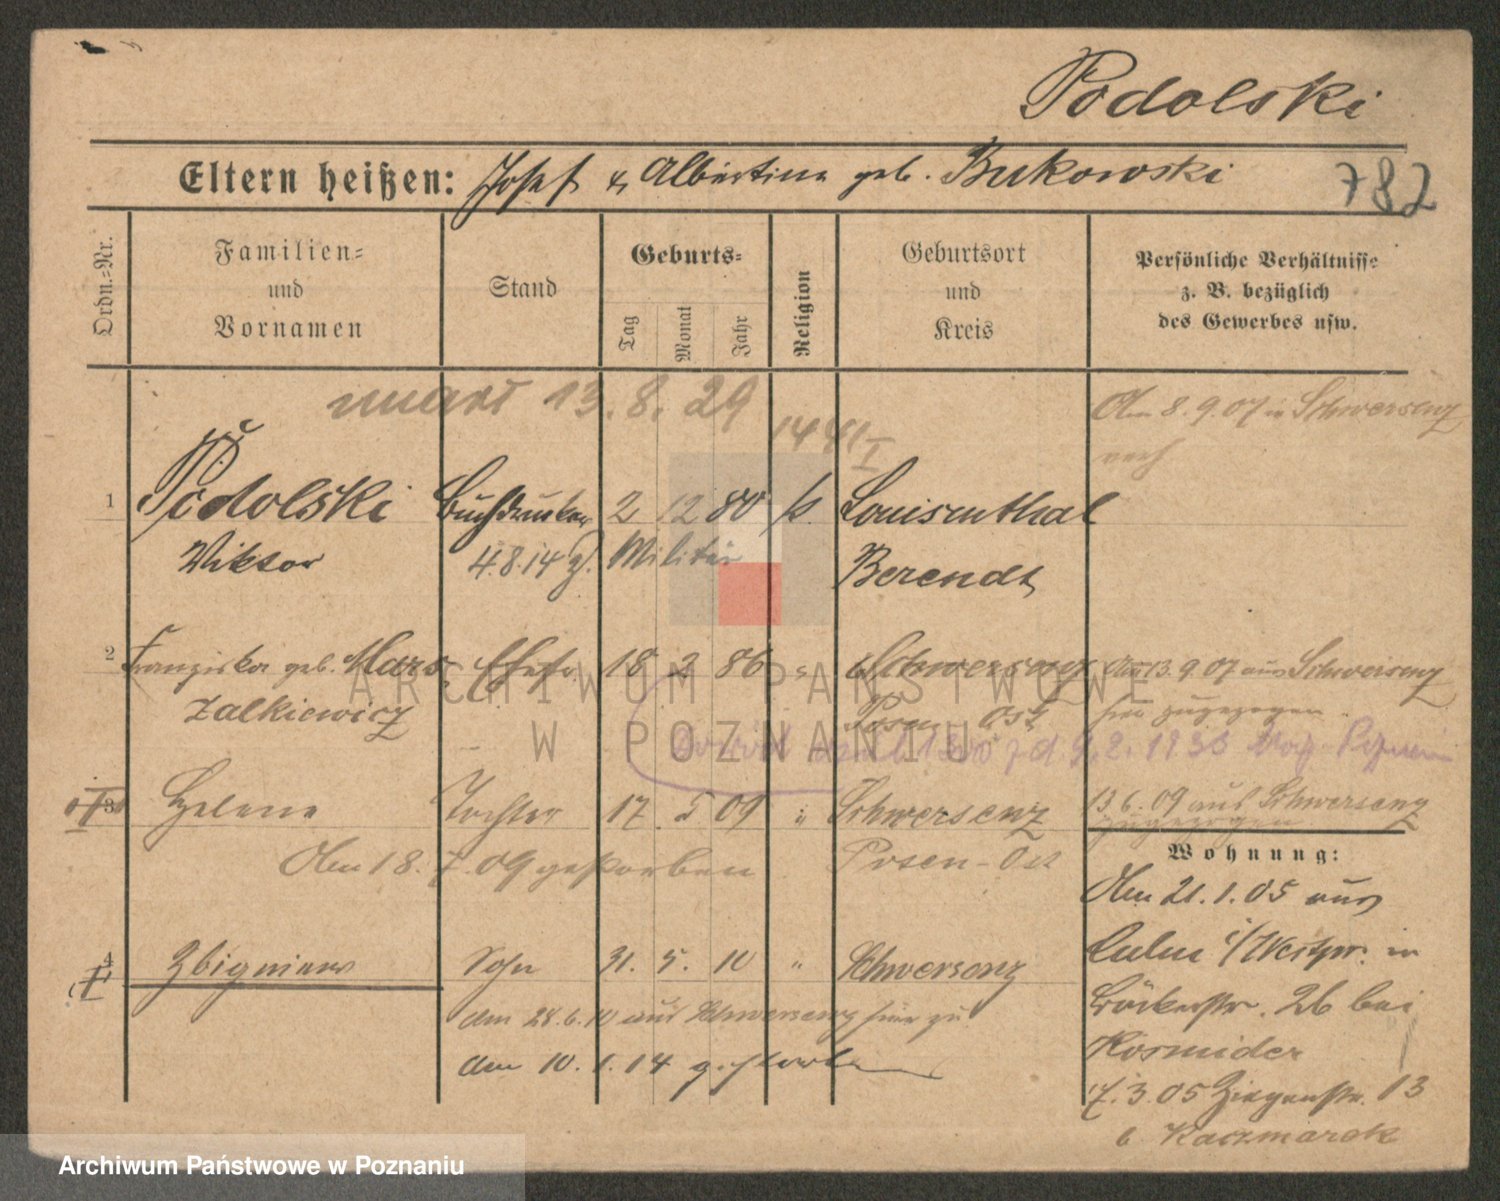 Podolski
Eltern heißen: Josef & Albertine geb. Bukowski
782
Ordn.-Nr.
Familien-
und
Vornamen
Stand
Geburts-
Tag
Monat
Jahr
Religion
Geburtsort
und
Kreis
Persönliche Verhältnisse
z. B. bezüglich
des Gewerbes usw.
13. 8. 29
1441 I
Am 8. 9. 07 in Schwersenz
1 Podolski Buchdrucker 2 12 80 k. Louisenthal
Viktor 4.8.14 z. Militär Berendt
2 Franziska geb. Mars- Ehefr. 18 2 86 " Schwersenz Am 13. 9. 07 aus Schwersenz
zalkiewicz Posen Ost hier zugezogen.
3 Helene Tochter 17. 5 09 " Schwersenz 13. 6. 09 aus Schwersenz
zugezogen
Am 18. 7. 09 gestorben Posen-Ost
Wohnung:
Am 21. 1. 05 aus
4 Zbigniew Sohn 31. 5. 10 " Schwersenz
Culm i/Westpr. in
am 28. 6. 10 aus Schwersenz hier zu
Bäckerstr. 26 bei
am 10. 1. 14 gestorben
Kosmider
7. 3. 05 Ziegenstr. 13
b Kaczmarek
ARCHIWUM PAŃSTWOWE
W POZNANIU
Archiwum Państwowe w Poznaniu